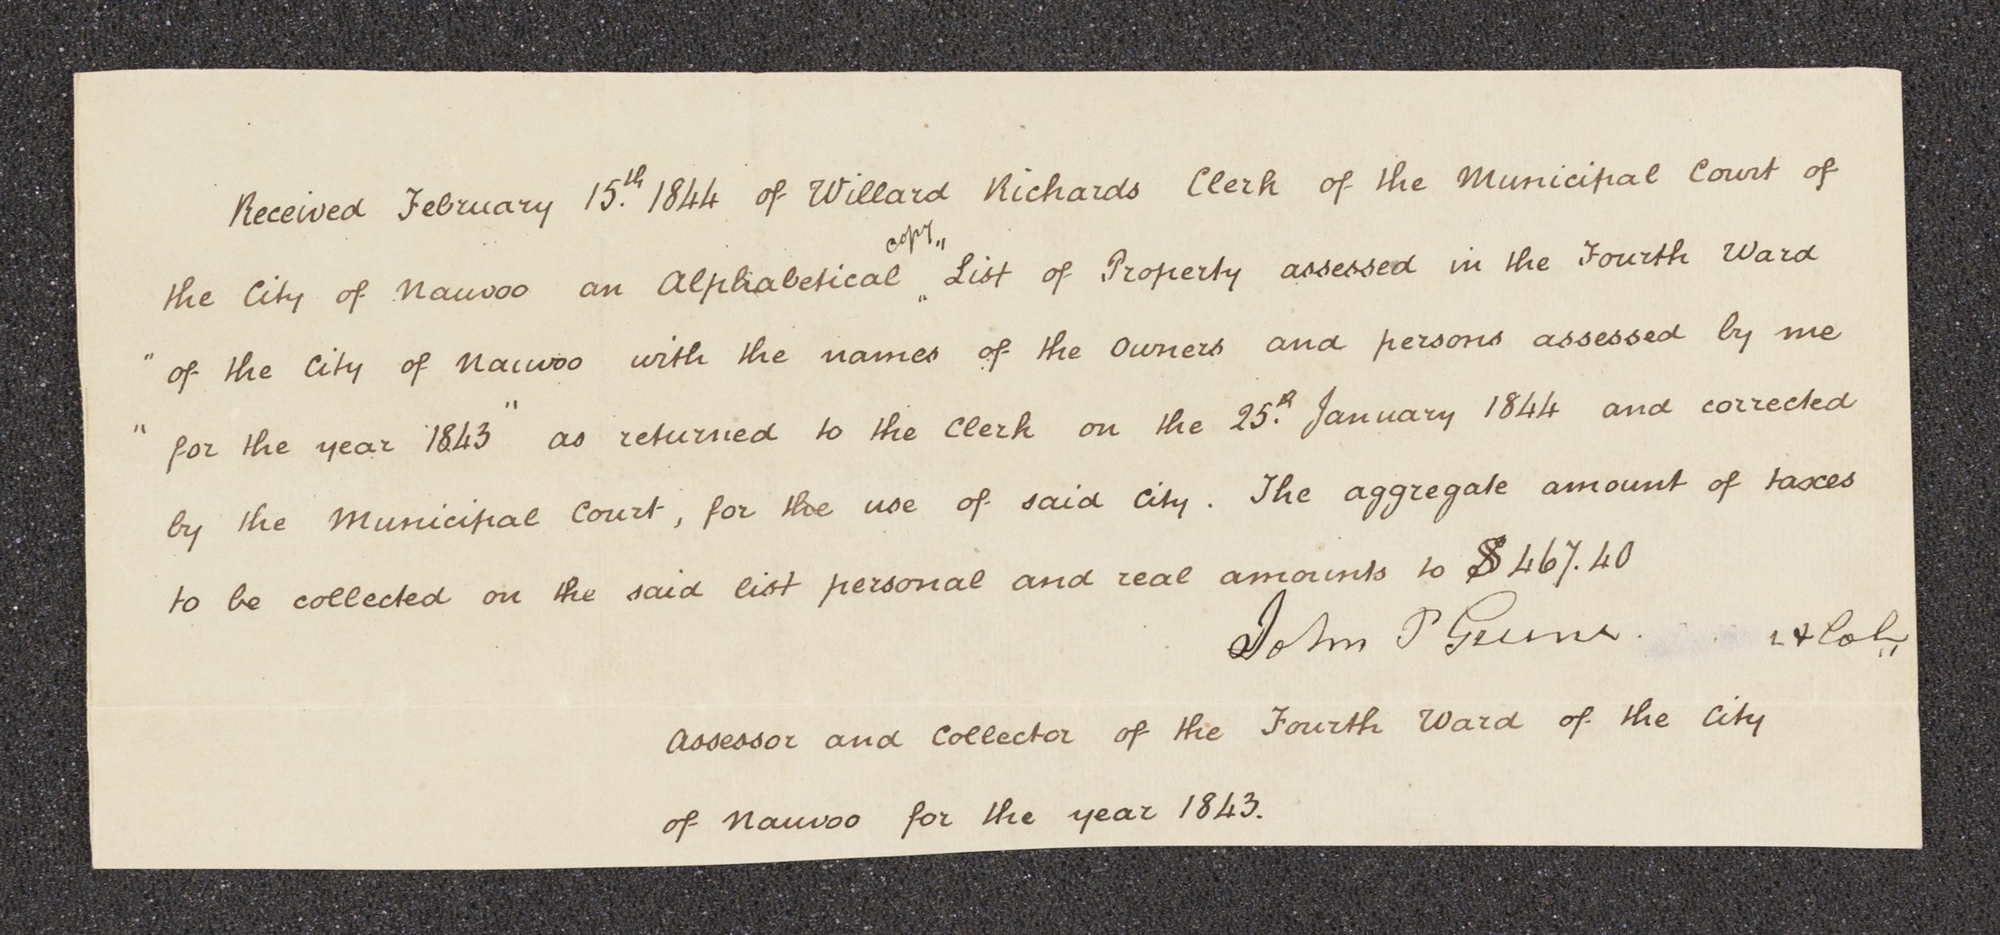 Received February 15.th 1844 of Willard Richards Clerk of the Municipal Court of
the City of Nauvoo an Alphabetical copy "List of Property assessed in the Fourth Ward
" of the City of Nauvoo with the names of the owners and persons assessed by me
" for the year 1843" as returned to the Clerk on the 25.th January 1844 and corrected
by the Municipal Court, for the use of said City. The aggregate amount of taxes
to be collected on the said list personal and real amounts to $467.40
John P Greene.
Assessor and Collector of the Fourth Ward of the City
of Nauvoo for the year 1843.